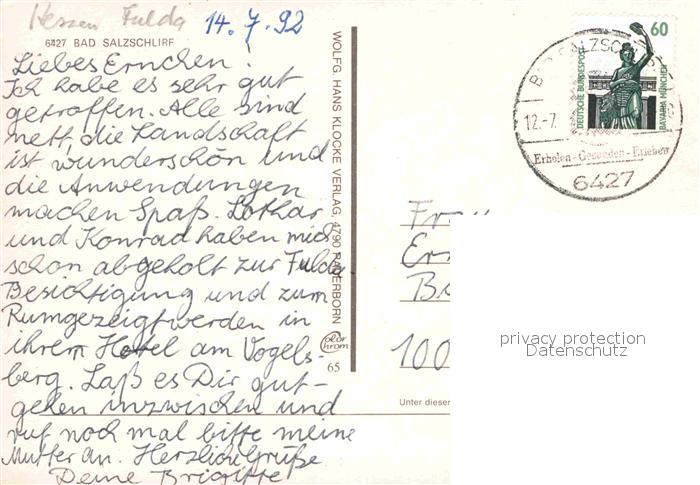 Hessen Fulda
14.7.92
6427 BAD SALZSCHLIRF
Liebes Ernchen!
Ich habe es sehr gut
getroffen. Alle sind
nett, die Landschaft
ist wunderschön und
die Anwendungen
machen Spaß. Lothar
und Konrad haben mich
schon abgeholt zur Fulda-
Besichtigung und zum
Rumgezeigtwerden in
ihrem Hotel am Vogels-
berg. Laß es Dir gut-
gehen inzwischen und
ruf noch mal bitte meine
Mutter an. Herzliche Grüße
Deine Brigitte
WOLFG. HANS KLOCKE VERLAG, 4790 PADERBORN
Color
chrom
65
DEUTSCHE BUNDESPOST
60
BAVARIA MÜNCHEN
BAD SALZSCHLIRF
12.-7.
Erholen-Gesunden-Erleben
6427
100
Unter dieser
privacy protection
Datenschutz